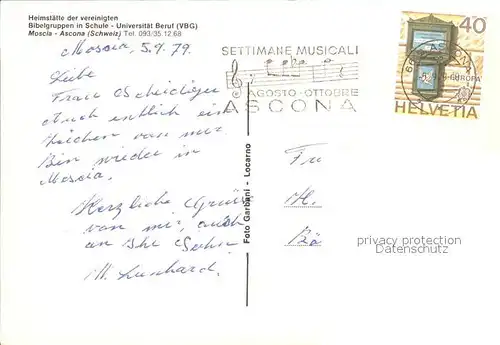 Heimstätte der vereinigten
Bibelgruppen in Schule - Universität Beruf (VBG)
Moscia - Ascona (Schweiz) Tel. 093/35.12.68
Moscia, 5.9.79
Liebe
Frau Scheidiger
Auch endlich ein
Zeichen von mir.
Bin wieder in
Moscia.
Herzliche Grüsse
von mir, auch
an Ihr Sohn
M. Lienhard.
SETTIMANE MUSICALI
AGOSTO - OTTOBRE
ASCONA
40
ASCONA
EUROPA
HELVETIA
Foto Garbani - Locarno
Fr
H.
Bä
privacy protection
Datenschutz